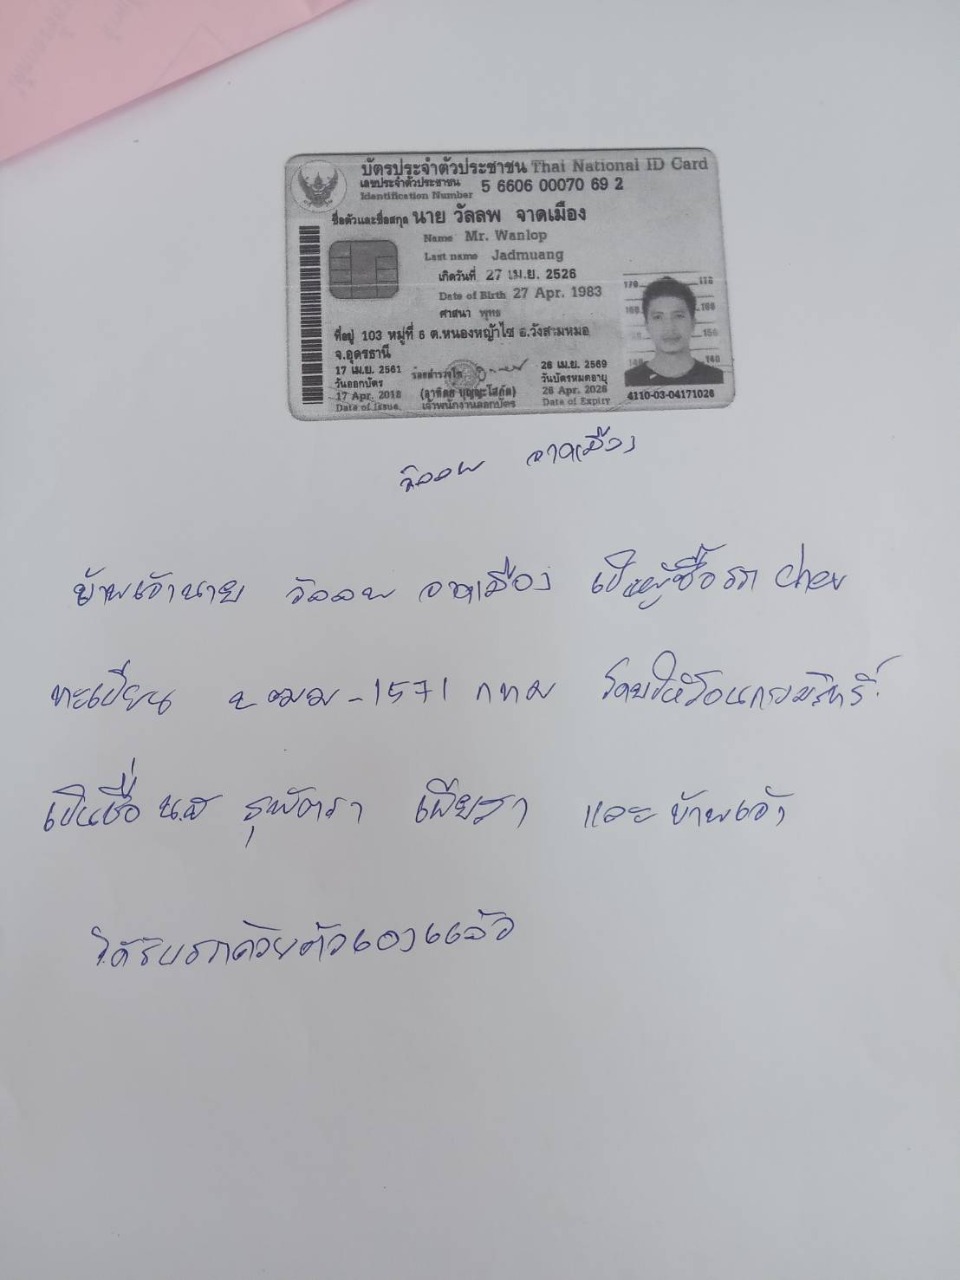 บัตรประจำตัวประชาชน Thai National ID Card
เลขประจำตัวประชาชน 5 6606 00070 69 2
Identification Number
ชื่อตัวและชื่อสกุล นาย วัลลพ จาดเมือง
Name Mr. Wanlop
Last name Jadmuang
เกิดวันที่ 27 เม.ย. 2526
Date of Birth 27 Apr. 1983
ศาสนา พุทธ
ที่อยู่ 103 หมู่ที่ 6 ต.หนองหญ้าไซ อ.วังสามหมอ
จ.อุดรธานี
17 เม.ย. 2561
วันออกบัตร
17 Apr. 2018
Date of Issue
เจ้าพนักงานออกบัตร
26 เม.ย. 2569
วันบัตรหมดอายุ
26 Apr. 2026
Date of Expiry
4110-03-04171026
วัลลพ จาดเมือง
ข้าพเจ้านาย วัลลพ จาดเมือง เป็นผู้ซื้อรถ chev
ทะเบียน -1571 กทม โดยให้โอนกรรมสิทธิ์
เป็นชื่อ น.ส สุพัตรา และ ข้าพเจ้า
ได้รับรถด้วยตัวเองแล้ว